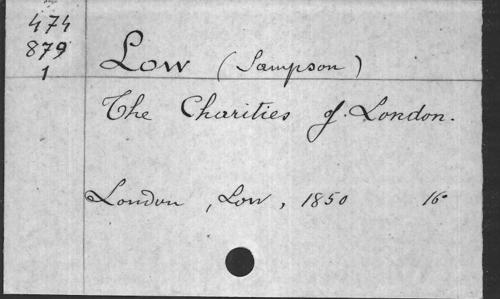 474
879
1
Low (Sampson)
The Charities of London.
London, Low, 1850 16°